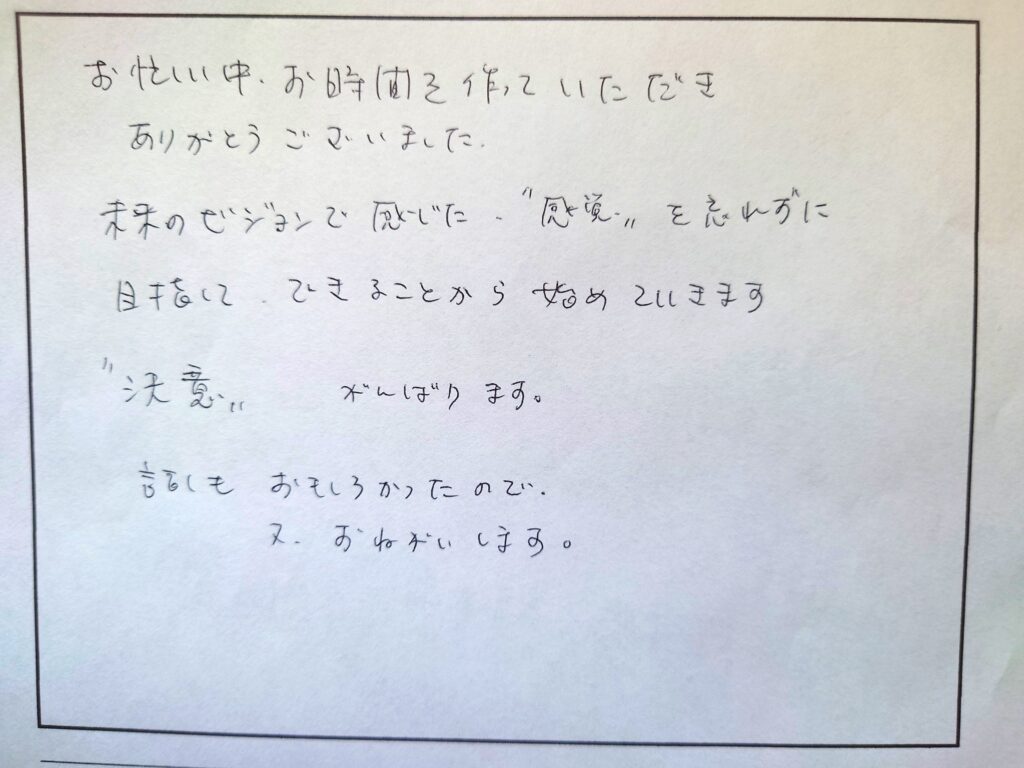 お忙しい中、お時間を作っていただき
ありがとうございました。
未来のビジョンで感じた、〝感覚〟を忘れずに
目指して、できることから始めていきます
〝決意〟 がんばります。
話しも おもしろかったので、
又、おねがいします。